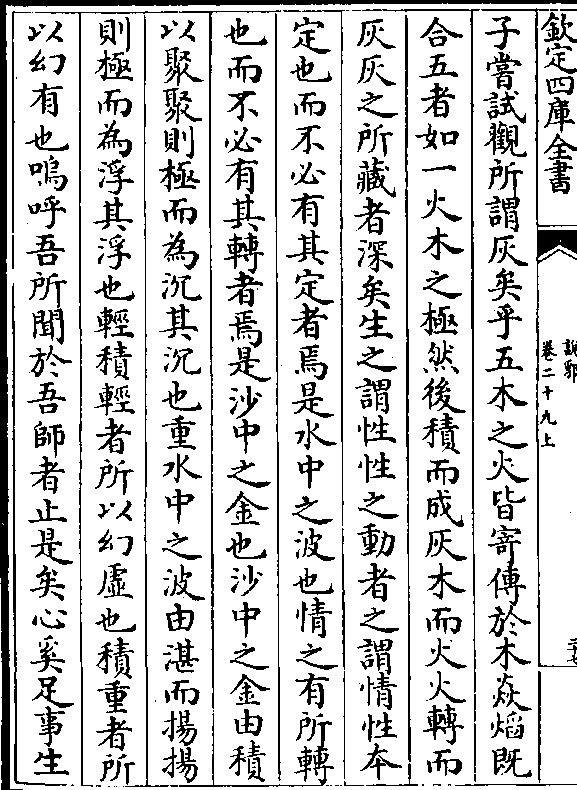 欽定四庫全書
說郛
卷二十九上
子嘗試觀所謂灰矣乎五木之火皆寄傳於木焱熖既
合五者如一火木之極然後積而成灰木而火火轉而
灰灰之所藏者深矣生之謂性性之動者之謂情性本
定也而不必有其定者焉是水中之波也情之有所轉
也而不必有其轉者焉是沙中之金也沙中之金由積
以聚聚則極而為沉其沉也重水中之波由湛而揚揚
則極而為浮其浮也輕積輕者所以幻虛也積重者所
以幻有也嗚呼吾所聞於吾師者止是矣心奚足事生